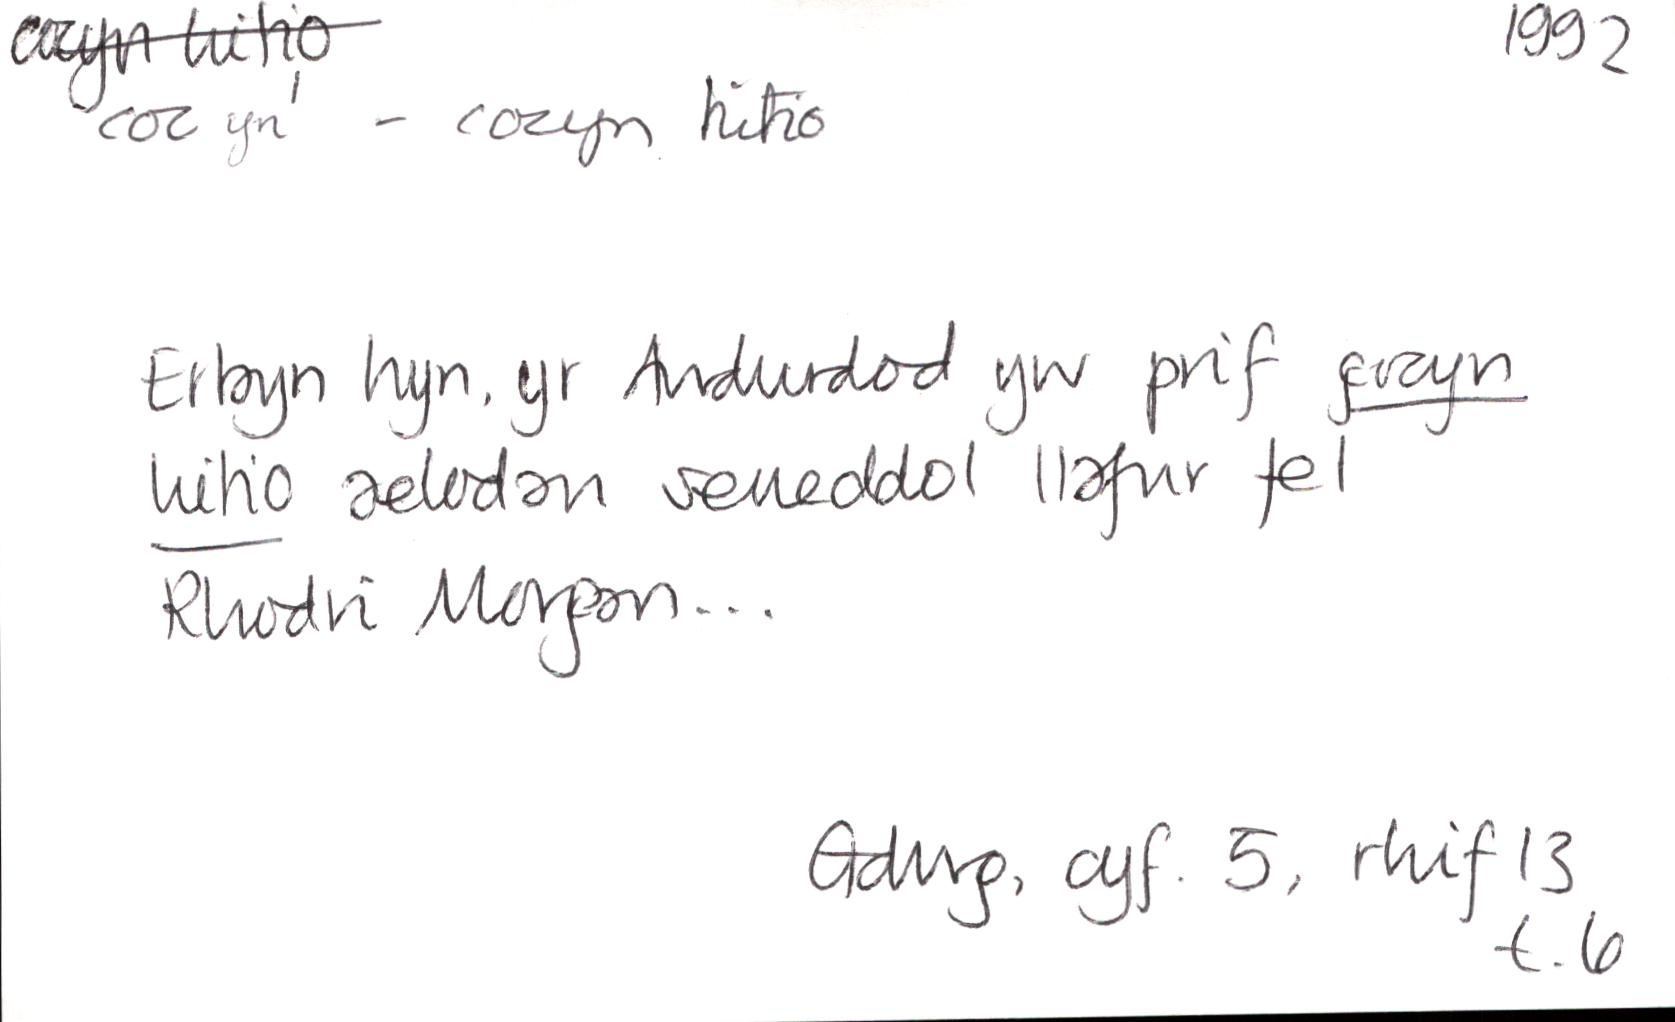 cocyn hitio
1992
cocyn¹ - cocyn hitio
Erbyn hyn, yr Awdurdod yw prif gocyn
hitio aelodau seneddol llafur fel
Rhodri Morgan...
Golwg, cyf. 5, rhif 13
t. 6